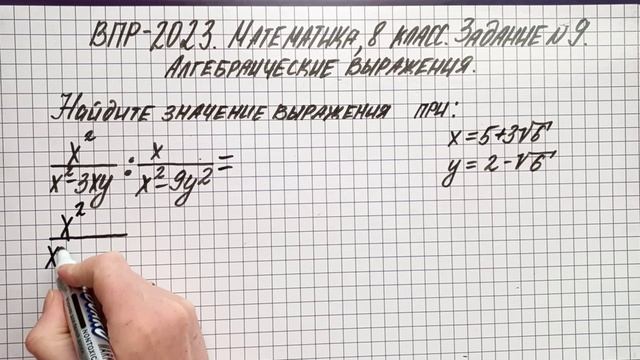 ВПР-2023. МАТЕМАТИКА, 8 КЛАСС. ЗАДАНИЕ №9.
АЛГЕБРАИЧЕСКИЕ ВЫРАЖЕНИЯ.
НАЙДИТЕ ЗНАЧЕНИЕ ВЫРАЖЕНИЯ ПРИ:
x = 5+3√5
y = 2-√5
x²/(x²-3xy) : x/(x²-9y²) =
x²
x
NONTOXIC